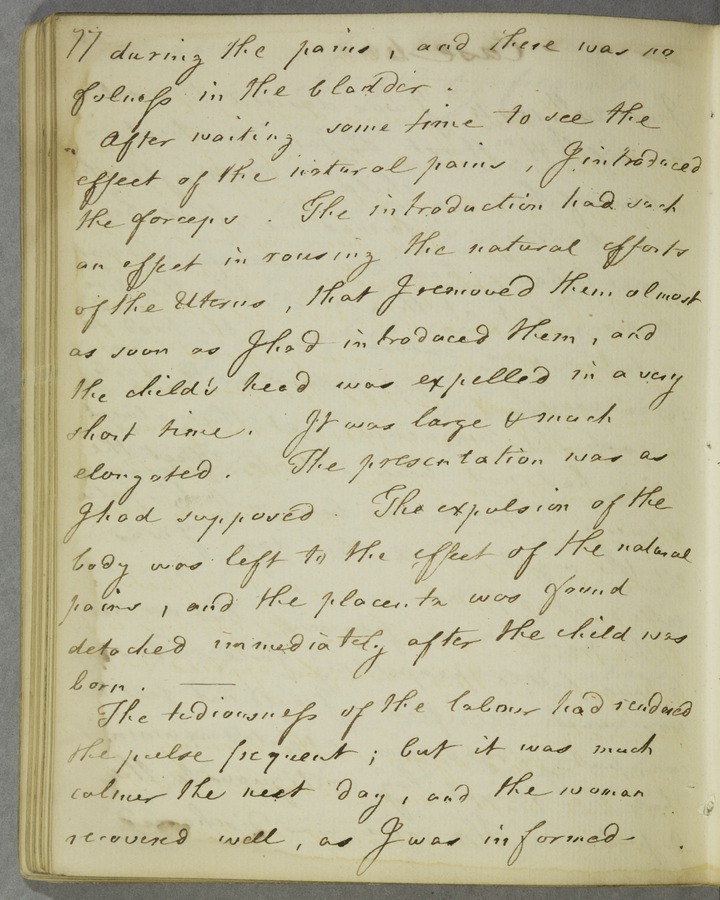 77 during the pains, and there was no
fulness in the bladder.
After waiting some time to see the
effect of the natural pains, I introduced
the forceps. The introduction had such
an effect in rousing the natural efforts
of the Uterus, that I removed them almost
as soon as I had introduced them, and
the child's head was expelled in a very
short time. It was large & much
elongated. The presentation was as
I had supposed. The expulsion of the
body was left to the effect of the natural
pains, and the placenta was found
detached immediately after the child was
born. —
The tediousness of the labour had rendered
the pulse frequent; but it was much
calmer the next day, and the woman
recovered well, as I was informed.